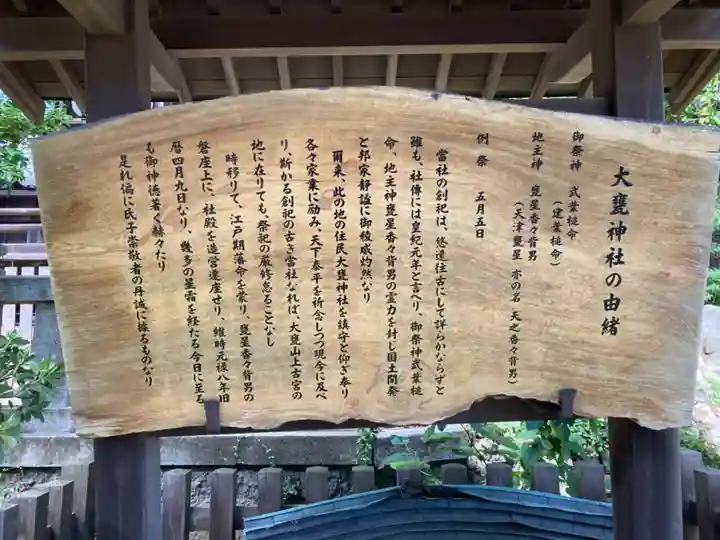 大甕神社の由緒
御祭神　武葉槌命
（建葉槌命）
地主神　甕星香々背男
（天津甕星　亦の名　天之香々背男）
例祭　五月五日
當社の創祀は、悠遠往古にして詳らかならずと
雖も、社傳には皇紀元年と言へり、御祭神武葉槌
命、地主神甕星香々背男の霊力を封じ国土開発
と邦家靜謐に御稜威灼然なり
爾来、此の地の住民大甕神社を鎮守と仰ぎ奉り
各々家業に励み、天下泰平を祈念しつつ現今に及べ
り、斯かる創祀の古き當社なれば、大甕山上古宮の
地に在りても、祭祀の厳修怠ることなし
時移りて、江戸期藩命を蒙り、甕星香々背男の
磐座上に、社殿を造営遷座せり、維時元禄八年旧
暦四月九日なり、幾多の星霜を経たる今日に至る
も御神徳著く赫々たり
是れ偏に氏子崇敬者の丹誠に據るものなり